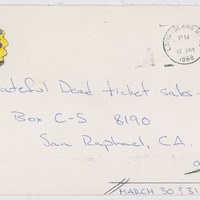 LONG ISLAND
PM
12 JAN
1988
ateful Dead ticket sales-
Box C-S 8190
San Raphael, CA.
MARCH 30 & 31